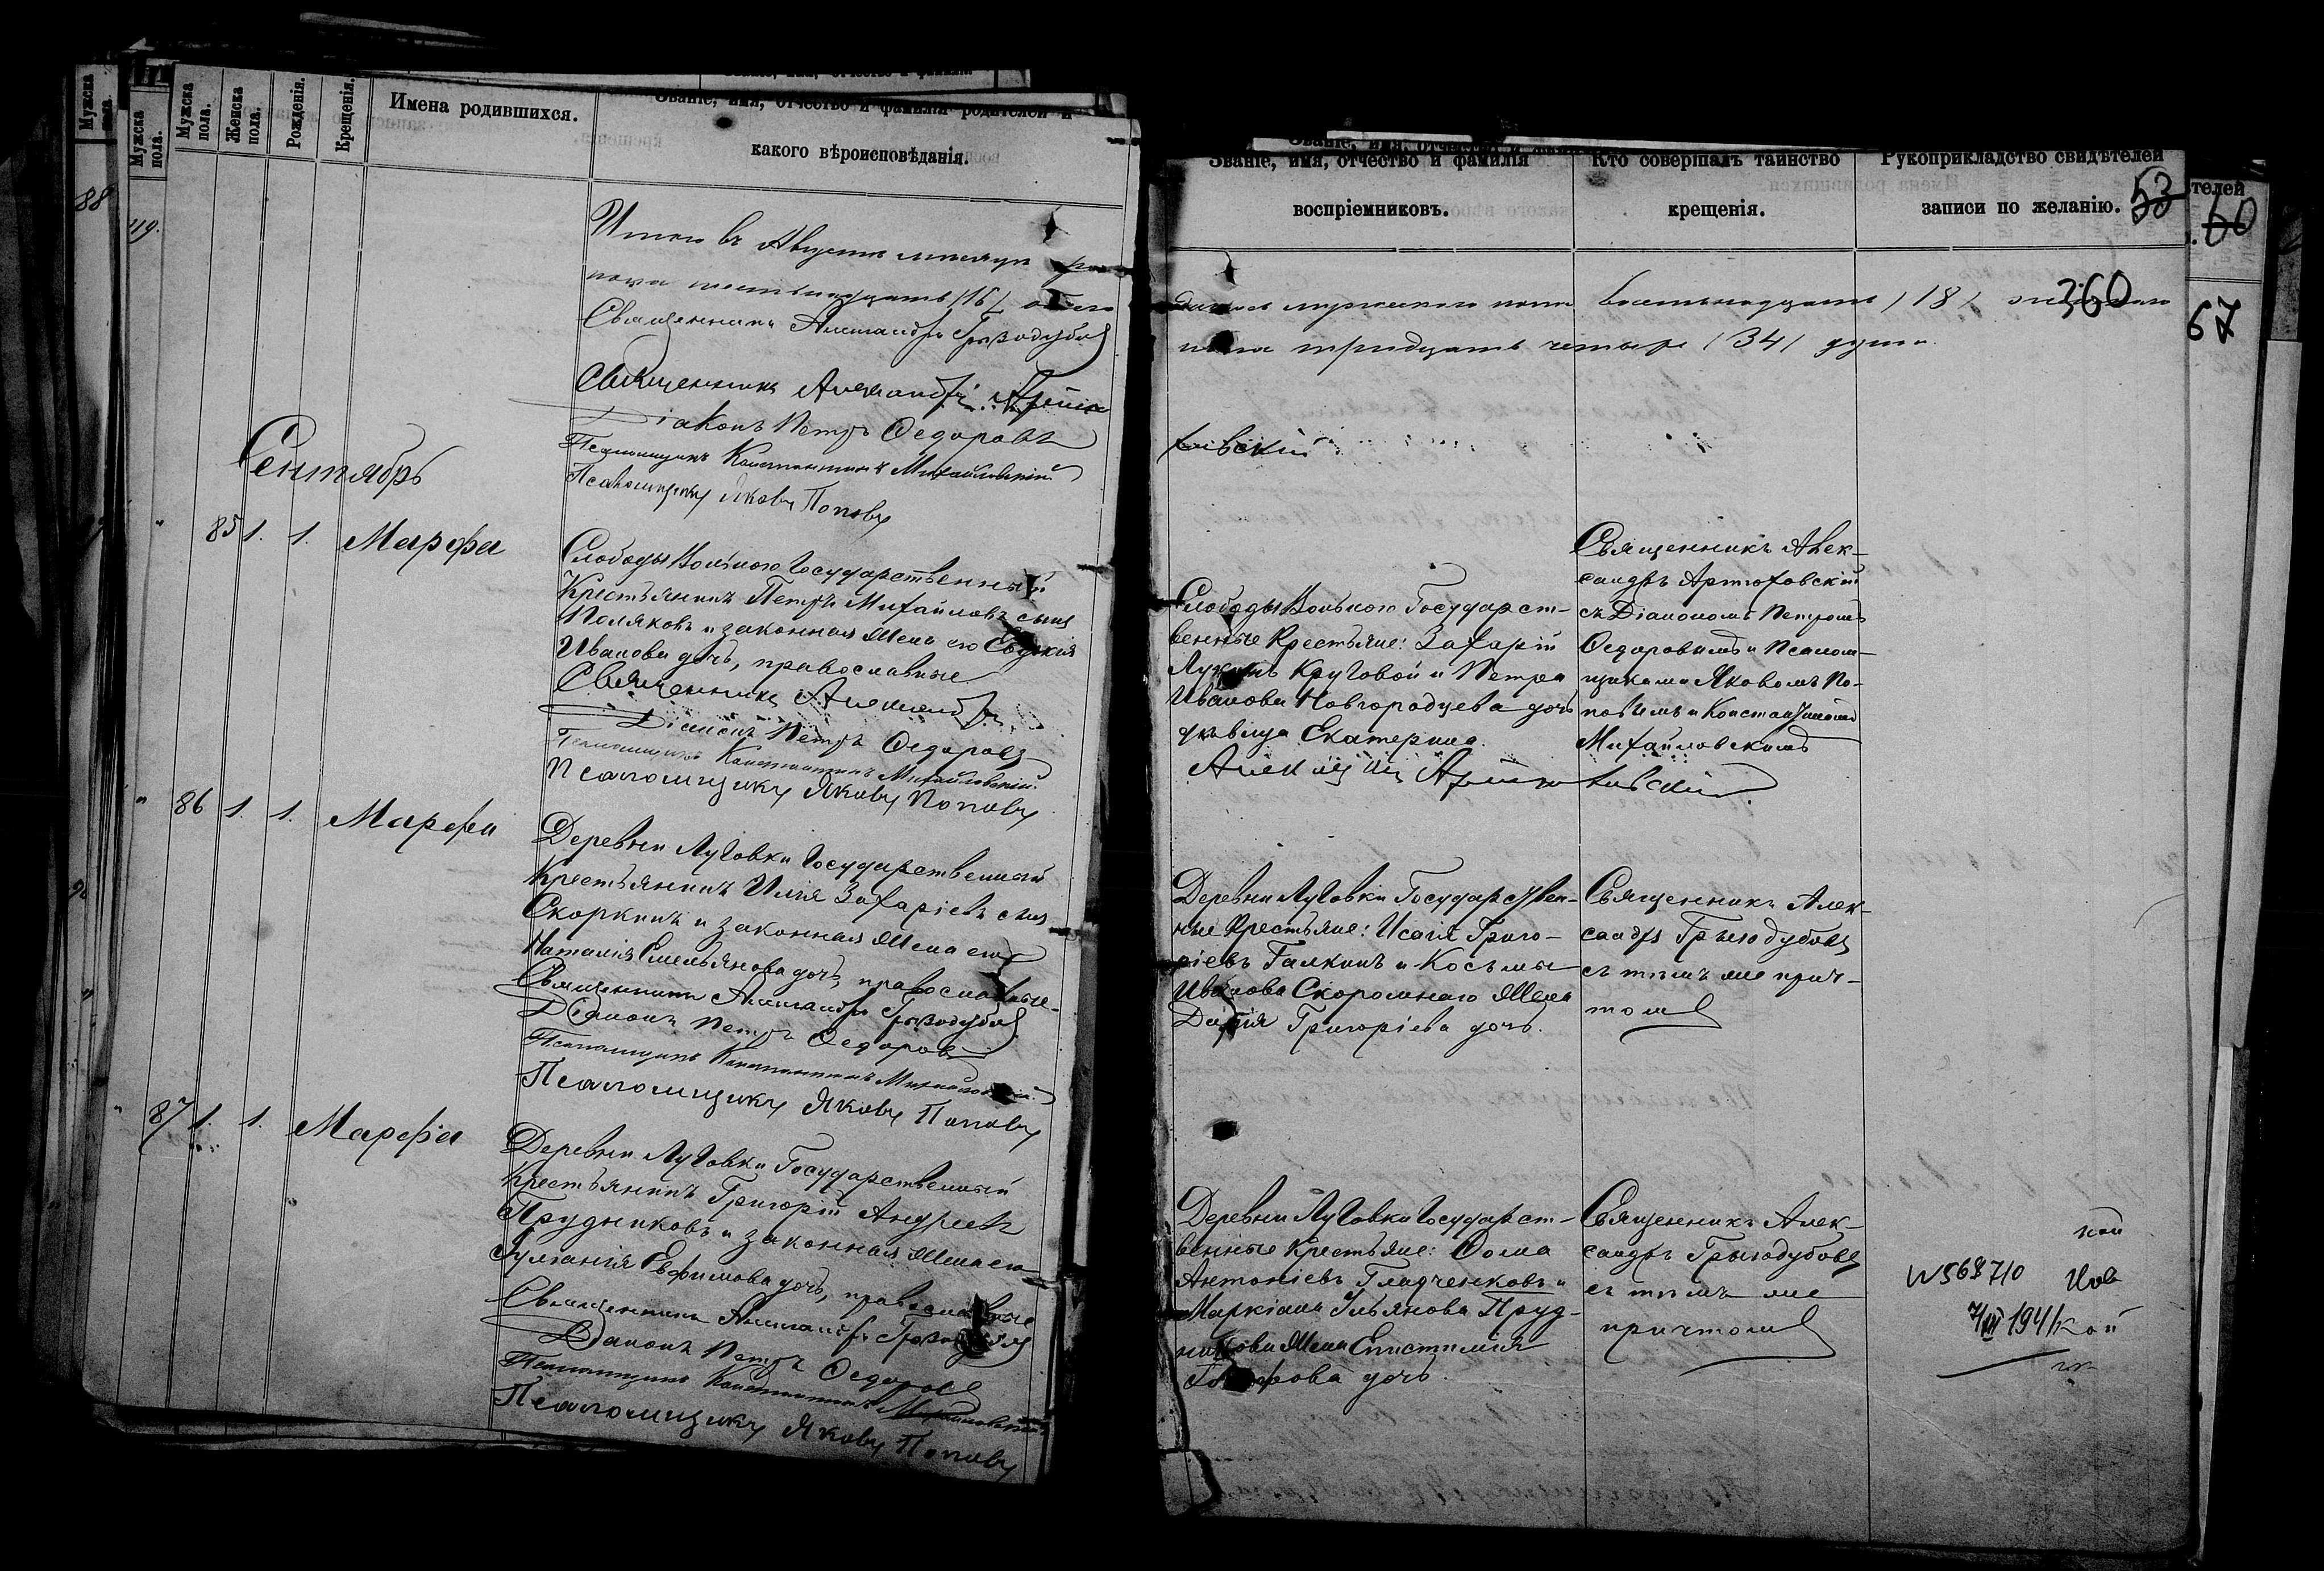 Мужска пола.
Мужска пола.
Мужска пола.
Женска пола.
Рожденія.
Крещенія.
Имена родившихся.
Званіе, имя, отчество и фамилія родителей и
какого вѣроисповѣданія.
88
119.
Итого въ Августѣ мѣсяцѣ
пола шестьнадцать /16/ обоего
Священникъ Александръ Грызодубовъ
Священникъ Александръ Артю
Діаконъ Петръ Ѳедоровъ
Псаломщикъ Константинъ Михайловскій
Псаломщикъ Яковъ Поповъ
Сентябрь
" 85 1. 1. Марѳа
Слободы Вольной Государственный
Крестьянинъ Петръ Михайловъ сынъ
Поляковъ и законная жена его Евдокія
Иванова дочь, православные
Священникъ Александръ
Діаконъ Петръ Ѳедоровъ
Псаломщикъ Константинъ Михайловскій
Псаломщикъ Яковъ Поповъ
" 86 1. 1. Марѳа
Деревни Луговки Государственный
Крестьянинъ Илія Захаріевъ сынъ
Скоркинъ и законная жена его
Наталія Емельянова дочь, православные
Священникъ Александръ Грызодубовъ
Діаконъ Петръ Ѳедоровъ
Псаломщикъ Константинъ Михайловскій
Псаломщикъ Яковъ Поповъ
" 87 1. 1. Марѳа
Деревни Луговки Государственный
Крестьянинъ Григорій Андреевъ
Прудниковъ и законная жена его
Іуліанія Евфимова дочь, православные
Священникъ Александръ Грызодубовъ
Діаконъ Петръ Ѳедоровъ
Псаломщикъ Константинъ Михайловскій
Псаломщикъ Яковъ Поповъ
Званіе, имя, отчество и фамилія
воспріемниковъ.
Кто совершалъ таинство
крещенія.
Рукоприкладство свидѣтелей
записи по желанію.
53
телей
60
360
67
мужескаго пола восемьнадцать /18/
пола тридцать четыре /34/ души.
ховскій
Слободы Вольной Государст-
венные Крестьяне: Захарій
Круговой и Петра
Иванова Новгородцева дочь
дѣвица Екатерина
Священникъ Алек-
сандръ Артюховскій
съ Діакономъ Петромъ
Ѳедоровымъ и Псалом-
щиками Яковомъ По-
повымъ и Константиномъ
Михайловскимъ
Артюховскій
Деревни Луговки Государствен-
ные Крестьяне: Исаія Григо-
ріевъ Галкинъ и Косьмы
Иванова Скоромнаго жена
Дарія Григоріева дочь.
Священникъ Алек-
сандръ Грызодубовъ
съ тѣмъ же прич-
томъ
Деревни Луговки Государст-
венные Крестьяне: Ѳома
Антоніевъ Гладченковъ и
Маркіана Ульянова Пруд-
никова жена Епистимія
дочь.
Священникъ Алек-
сандръ Грызодубовъ
съ тѣмъ же
причтомъ
№568710
7/III 1941